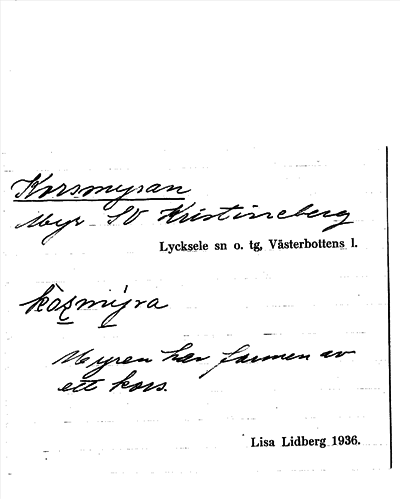 Korsmyran
Myr SV Kristineberg
Lycksele sn o. tg, Västerbottens l.
Myren har formen av
ett kors.
Lisa Lidberg 1936.